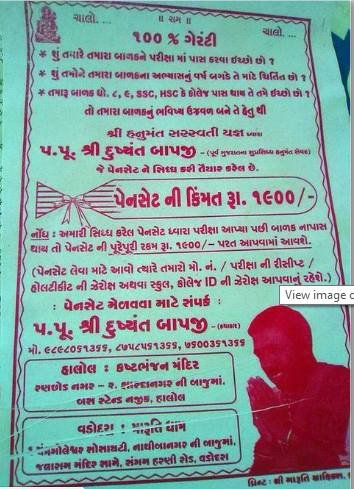 ચાલો. ... ॥ રામ ॥ ચાલો. ...
૧૦૦ % ગેરંટી
* શું તમારે તમારા બાળકને પરીક્ષા માં પાસ કરવા ઈચ્છો છો ?
* શું તમોને તમારા બાળકના અભ્યાસનું વર્ષ બગડે તે માટે ચિંતિત છો ?
* તમારૂ બાળક ધો. ૮, ૯, SSC, HSC કે કોલેજ પાસ થાય તે તમે ઈચ્છો છો ?
તો તમારા બાળકનું ભવિષ્ય ઉજ્વળ બને તે હેતુ થી
શ્રી હનુમંત સરસ્વતી યજ્ઞ ધ્વારા
પ.પૂ. શ્રી દુષ્યંત બાપજી - (પૂર્વ ગુજરાતના સુપ્રસિધ્ધ હનુમંત સેવક)
જે પેનસેટ ને સિધ્ધ કરી તૈયાર કરેલ છે.
પેનસેટ ની કિંમત રૂા. ૧૯૦૦/-
નોંધ : અમારી સિધ્ધ કરેલ પેનસેટ ધ્વારા પરીક્ષા આપ્યા પછી બાળક નાપાસ
થાય તો પેનસેટ ની પુરેપુરી રકમ રૂા. ૧૯૦૦/- પરત આપવામાં આવશે.
(પેનસેટ લેવા માટે આવો ત્યારે તમારો મો. નં. / પરીક્ષા ની રીસીપ્ટ /
હોલટીકીટ ની ઝેરોક્ષ અથવા સ્કુલ, કોલેજ ID ની ઝેરોક્ષ આપવાનું રહેશે.)
View image
: પેનસેટ મેળવવા માટે સંપર્ક :
પ.પૂ. શ્રી દુષ્યંત બાપજી - (કથાકાર)
મો. ૯૮૯૮૦૬૧૩૬૬, ૮૭૫૮૬૬૧૩૬૬, ૭૯૦૦૩૬૧૩૬૬
હાલોલ : કષ્ટભંજન મંદિર
રણછોડ નગર - ૨, શારદાનગર ની બાજુમાં,
બસ સ્ટેન્ડ નજીક, હાલોલ
વડોદરા : મારૂતિ ધામ
મંગલેશ્વર સોસાયટી, નાથીબાનગર ની બાજુમાં,
જલારામ મંદિર સામે, સંગમ હરણી રોડ, વડોદરા
પ્રિન્ટ : શ્રી મારૂતિ ગ્રાફિક્સ,